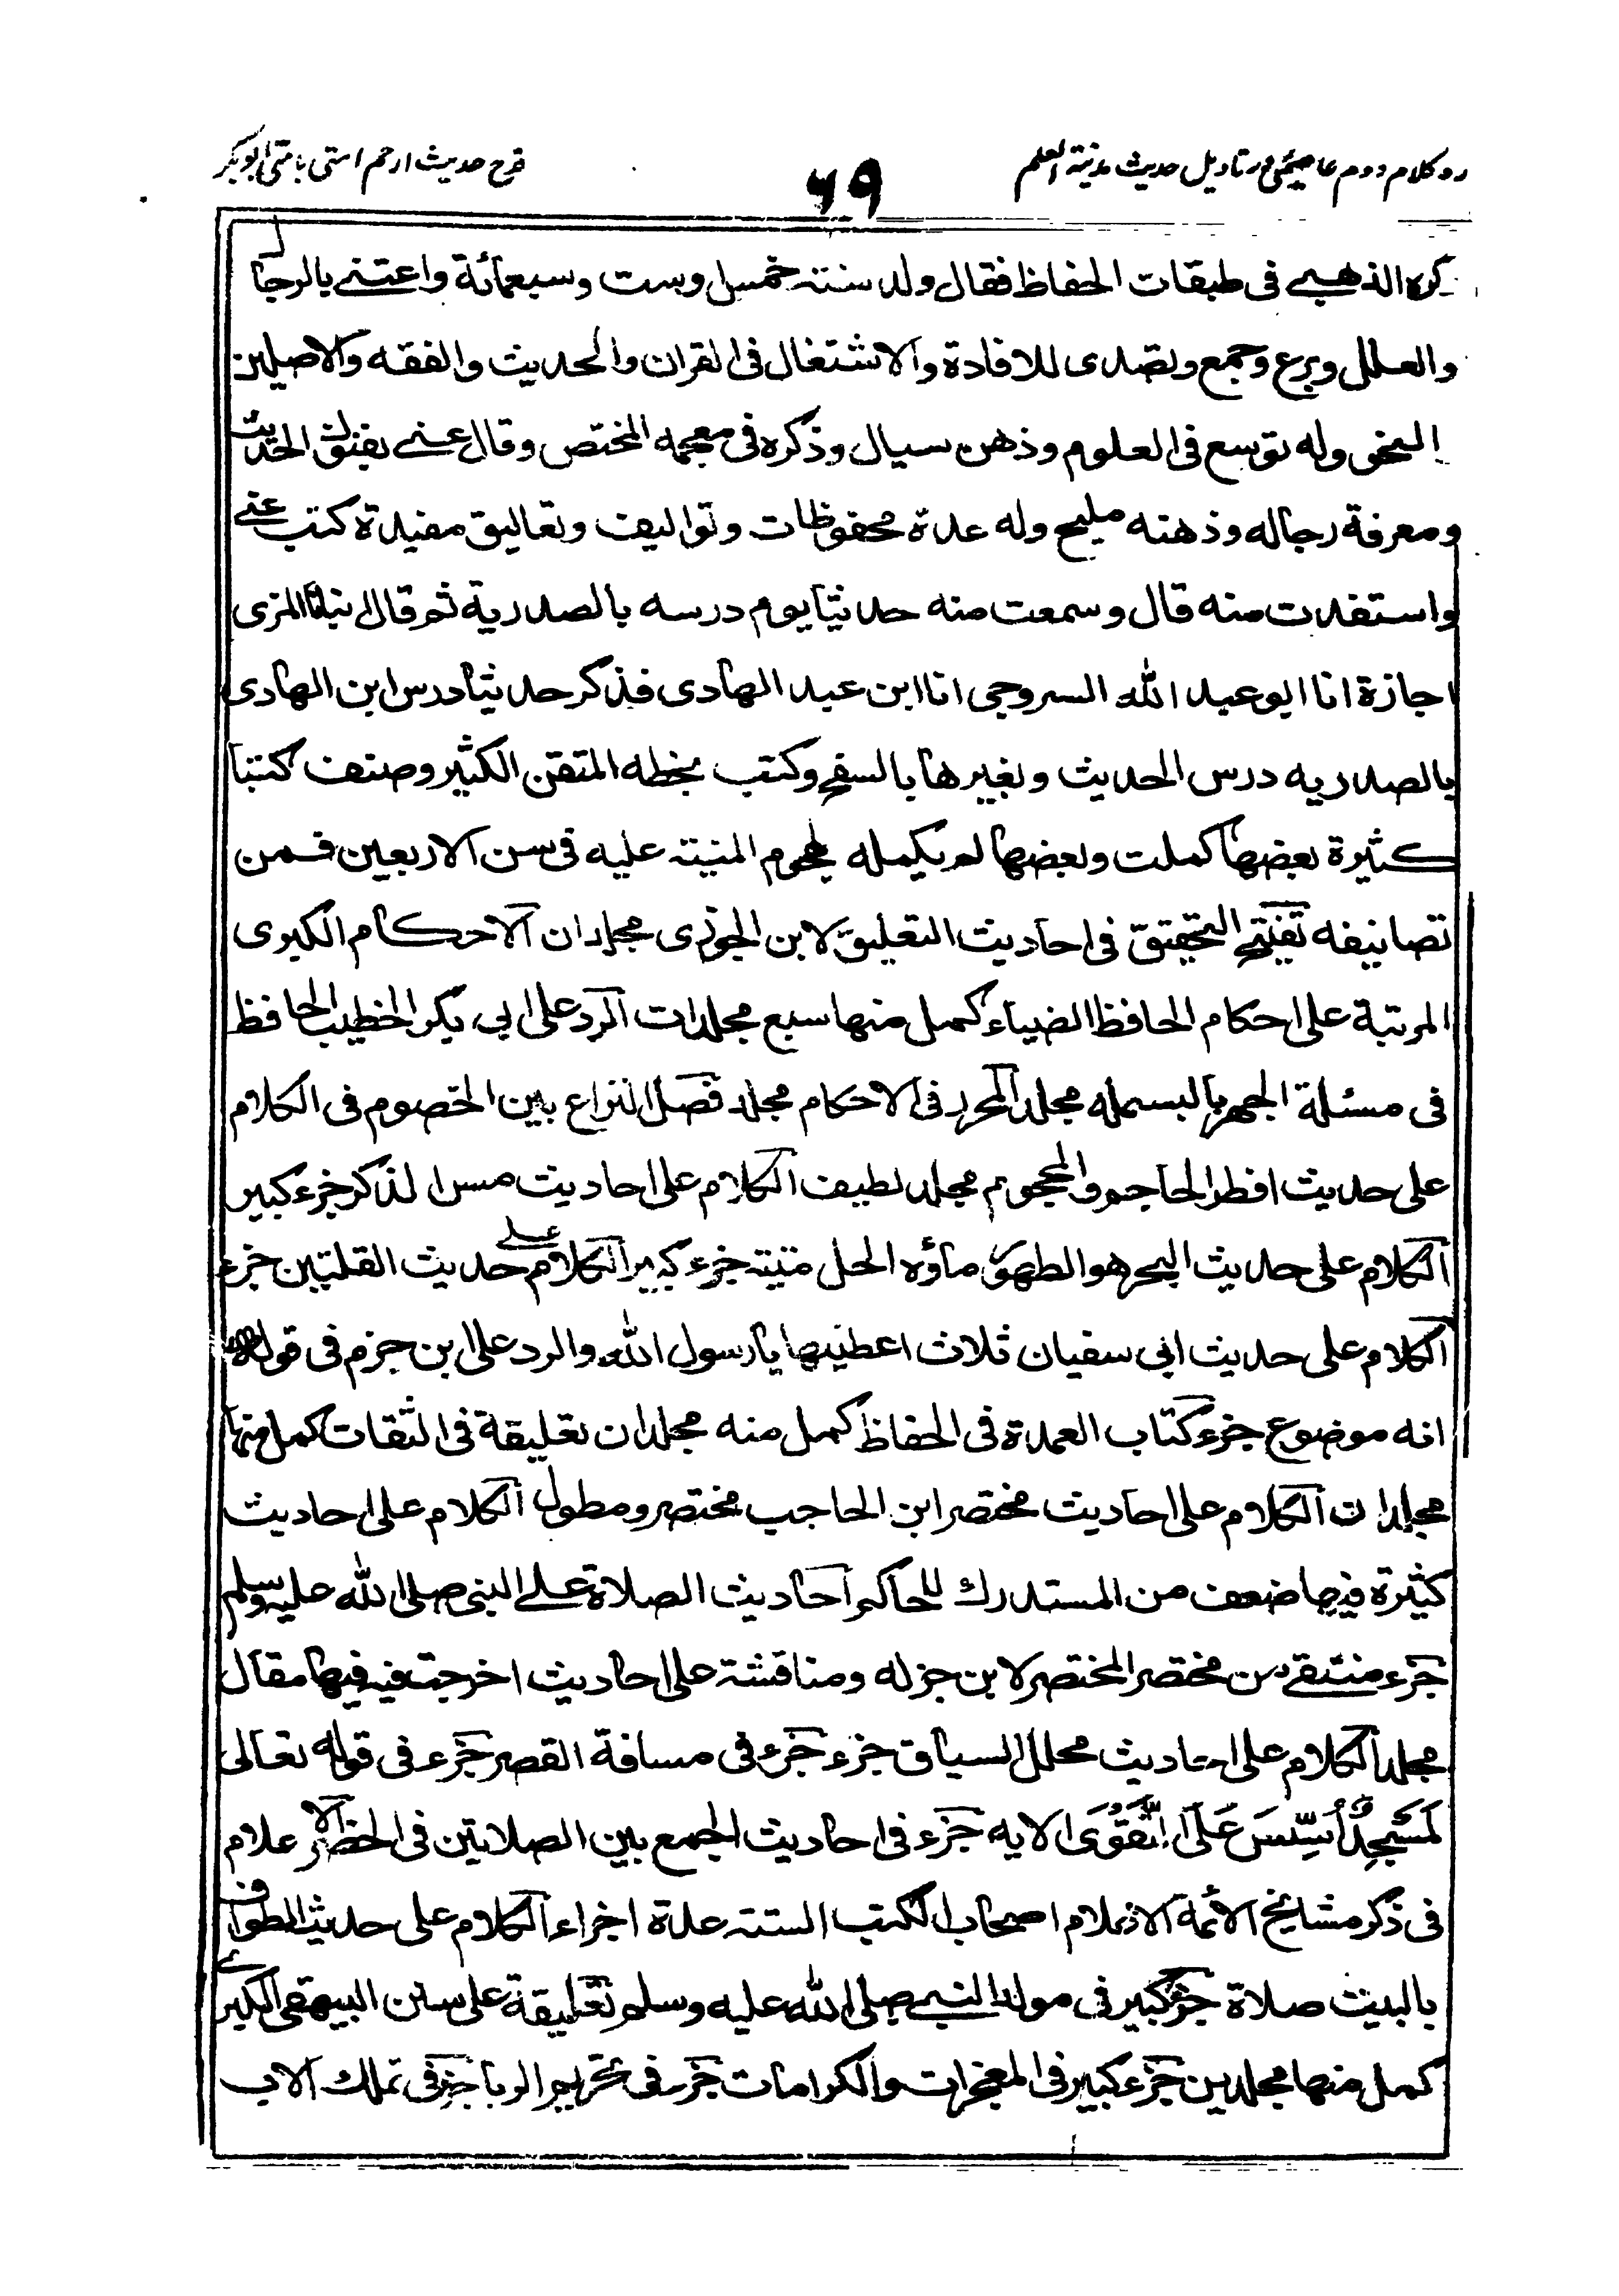 رد کلام دوم عاصمی در تاویل حدیث مدینة العلم
۶۹
قدح حدیث ارحم امتی بامتی ابو بکر
کره الذهبے فی طبقات الحفاظ فقال ولد سنته خمس اوست وسبعمائة واعتنے بالرجال
والعلل وبرع وجمع وتصدی للافادة والاشتغال فی القران والحدیث والفقه والاصلین
النحو وله توسع فی العلوم وذهن سیال وذکره فی معجمه المختص وقال عنے بفنون الحدیث
ومعرفة رجاله وذهنه ملیح وله عدة محفوظات وتوالیف وتعالیق مفیدة کتب عنے
واستفدت منه قال وسمعت منه حدیثا یوم درسه بالصدریة ثم قال انبانا المزی
اجازة انا ابو عبد الله السروجی انا ابن عبد الهادی فذکر حدیثا درس ابن الهادی
بالصدریه درس الحدیث وبغیرها بالسفح وکتب بخطه المتقن الکثیر وصنف کتبا
کثیرة بعضها کملت وبعضها لم یکمله لهجوم المنیته علیه فی سن الاربعین فمن
تصانیفه تنقیح التحقیق فی احادیث التعلیق لابن الجوزی مجلدان الاحکام الکبری
المرتبة علی احکام الحافظ الضیاء کمل منها سبع مجلدات الرد علی ابی بکر الخطیب الحافظ
فی مسئلة الجهر بالبسمله مجلد المحرر فی الاحکام مجلد فصل النزاع بین الخصوم فی الکلام
علی حدیث افطر الحاجم والمحجوم مجلد لطیف الکلام علی احادیث مس الذکر جزء کبیر
الکلام علی حدیث البحر هو الطهور ماؤه الحل میتته جزء کبیر الکلام علے حدیث القلتین جزء
الکلام علی حدیث ابی سفیان ثلاث اعطیتها یا رسول الله والرد علی ابن حزم فی قوله
انه موضوع جزء کتاب العمدة فی الحفاظ کمل منه مجلدان تعلیقة فی الثقات کمل منها
مجلدان الکلام علی احادیث مختصر ابن الحاجب مختصر ومطول الکلام علی احادیث
کثیرة فیها ضعف من المستدرك للحاکم احادیث الصلاة علے النبی صلی الله علیه وسلم
جزء منتقے من مختصر المختصر لابن خزله ومناقشة علی احادیث اخرجت فیه فیها مقال
مجلد الکلام علی احادیث محلل السباق جزء جزء فی مسافة القصر جزء فی قوله تعالی
لَمَسْجِدٌ أُسِّسَ عَلَى التَّقْوَى الایه جزء فی احادیث الجمع بین الصلاتین فی الحضر الاعلام
فی ذکر مشایخ الائمة الاعلام اصحاب الکتب الستته عدة اجزاء الکلام علی حدیث الطواف
بالبیت صلاة جزء کبیر فی مولد النبے صلی الله علیه وسلم تعلیقة علی سنن البیهقی الکبیر
کمل منها مجلدین جزء کبیر فی المعجزات والکرامات جزء فی تحریم الربا جزء فی تملك الاب